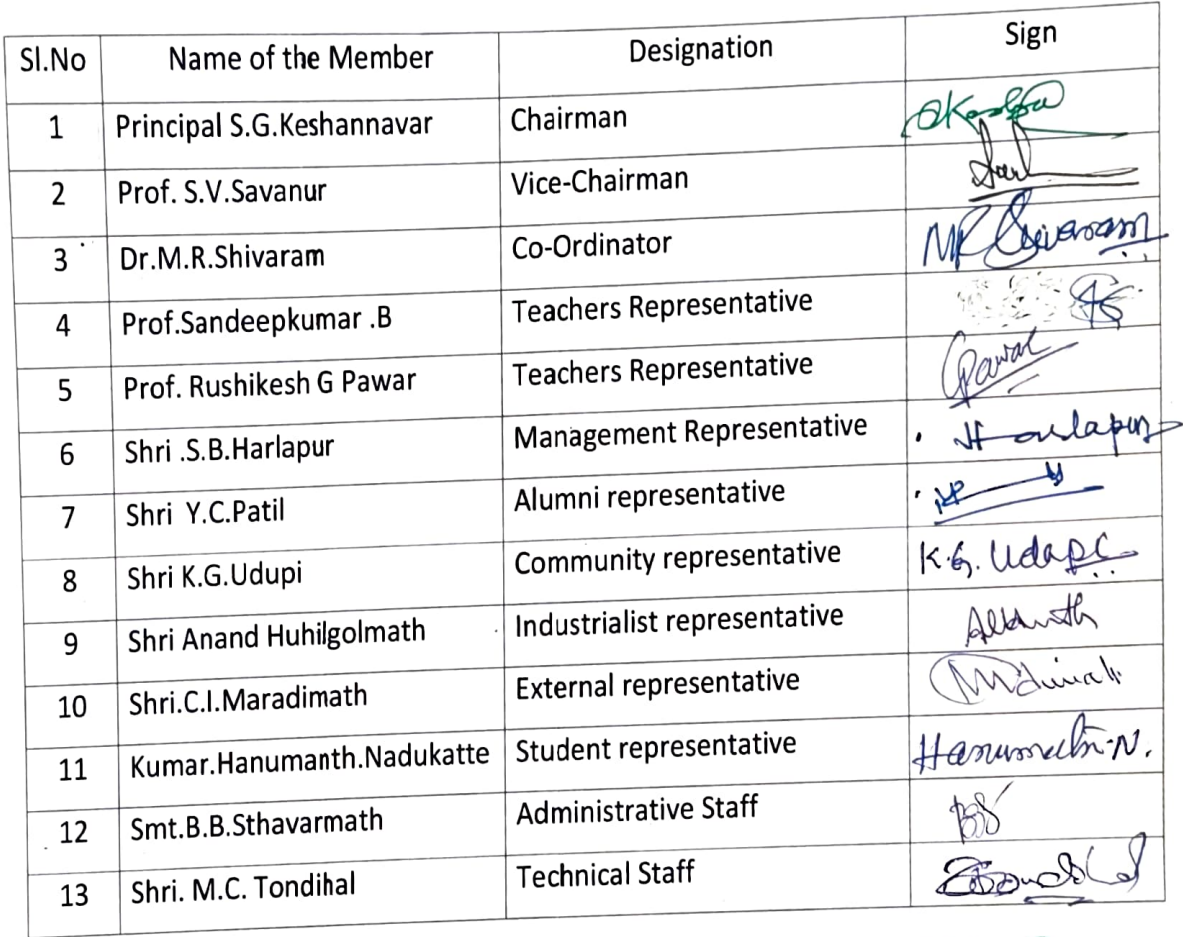 Sl.No Name of the Member Designation Sign
1 Principal S.G.Keshannavar Chairman
2 Prof. S.V.Savanur Vice-Chairman
3 Dr.M.R.Shivaram Co-Ordinator MR Shivaram
4 Prof.Sandeepkumar .B Teachers Representative
5 Prof. Rushikesh G Pawar Teachers Representative GPawar
6 Shri .S.B.Harlapur Management Representative Harlapur
7 Shri Y.C.Patil Alumni representative
8 Shri K.G.Udupi Community representative K.G. Udupi
9 Shri Anand Huhilgolmath Industrialist representative
10 Shri.C.I.Maradimath External representative
11 Kumar.Hanumanth.Nadukatte Student representative Hanumanth.N.
12 Smt.B.B.Sthavarmath Administrative Staff
13 Shri. M.C. Tondihal Technical Staff